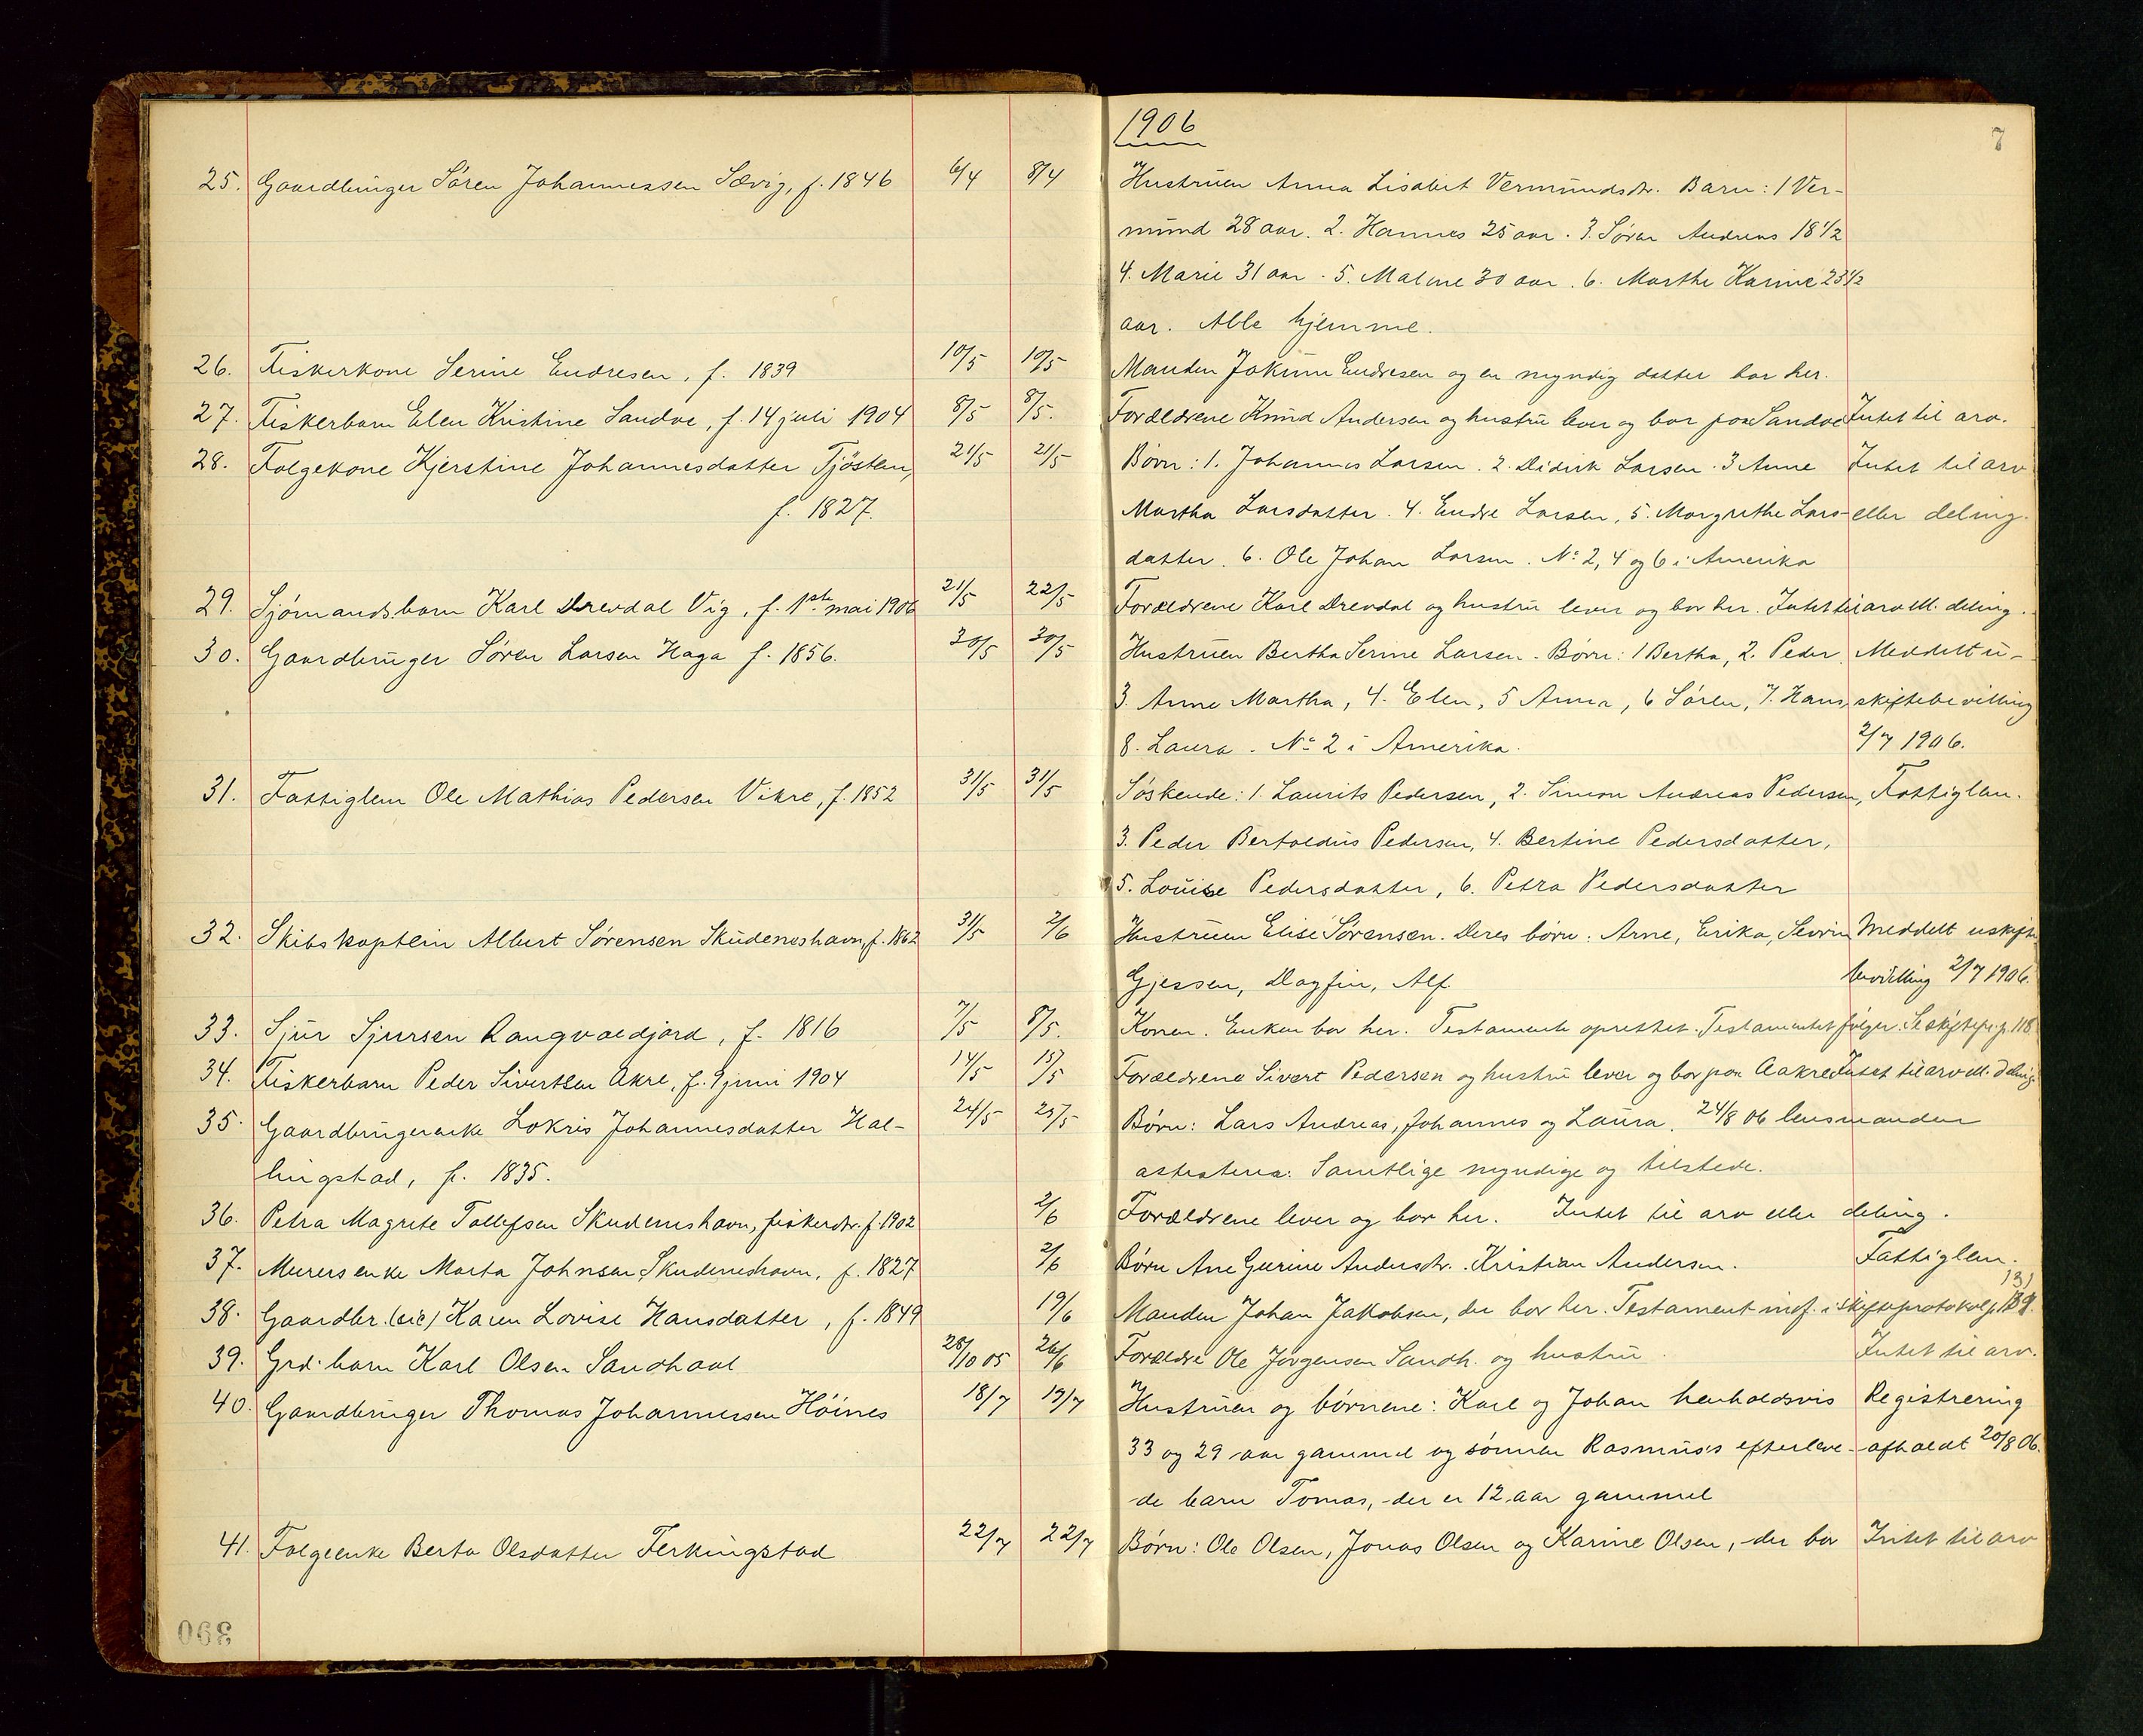 1906
7
25. Gaardbruger Søren Johannessen Sævig, f. 1846 6/4 8/4 Hustruen Anna Lisabet Vermundsdtr. Barn: 1 Ver-
mund 28 aar. 2. Hannes 25 aar. 3. Søren Andreas 18 1/2
4. Marie 31 aar. 5. Malene 30 aar. 6. Marthe Karine 23 1/2
aar. Alle hjemme.
26. Fiskerkone Serine Endresen, f. 1839 10/5 10/5 Manden Jokum Endresen og en myndig datter bor her.
27. Fiskerbarn Elen Kristine Sandve, f. 14 juli 1904 8/5 8/5. Forældrene Knud Andersen og hustru lever og bor paa Sandve Intet til arv.
28. Folgekone Kjerstine Johannesdatter Tjøsten, 21/5 21/5 Børn: 1. Johannes Larsen. 2. Didrik Larsen. 3 Anne Intet til arv
f. 1827. Martha Larsdatter. 4. Endre Larsen, 5. Margrethe Lars- eller deling.
datter. 6. Ole Johan Larsen. No 2, 4 og 6 i Amerika
29. Sjømandsbarn Karl Drevdal Vig, f. 1ste mai 1906 21/5 22/5 Forældrene Karl Drevdal og hustru lever og bor her. Intet til arv ell. deling.
30. Gaardbruger Søren Larsen Haga f. 1856. 30/5 30/5 Hustruen Bertha Serine Larsen. Børn: 1 Bertha, 2. Peder, Meddelt u-
3. Anne Martha, 4. Elen, 5 Anna, 6 Søren, 7. Hans, skiftebevilling
8. Laura. No 2 i Amerika. 2/7 1906.
31. Fattiglem Ole Mathias Pedersen Vikre, f. 1852 31/5 31/5 Søskende: 1. Laurits Pedersen, 2. Simon Andreas Pedersen, Fattiglem.
3. Peder Bertoldus Pedersen, 4. Bertine Pedersdatter,
5. Louise Pedersdatter, 6. Petra Pedersdatter
32. Skibskaptein Albert Sørensen Skudeneshavn, f. 1862 31/5 2/6 Hustruen Elise Sørensen. Deres børn: Arne, Erika, Sevrin Meddelt uskifte
Gjessen, Dagfin, Alf. bevilling 2/7 1906.
33. Sjur Sjursen Rangvaldjord, f. 1816 7/5 8/5. Konen. Enken bor her. Testamente oprettet. Testamentet følger. Se skiftepr. p. 118
34. Fiskerbarn Peder Sivertsen Akre, f. 9 juni 1904 14/5 15/5 Forældrene Sivert Pedersen og hustru lever og bor paa Aakre Intet til arv ell. deling.
35. Gaardbrugerenke Lokris Johannesdatter Hal- 24/5 25/5 Børn: Lars Andreas, Johannes og Laura. 24/8 06 lensmanden
lingstad, f. 1835. attesterer: Samtlige myndige og tilstede.
36. Petra Magrete Tollefsen Skudeneshavn, fiskerdtr. f. 1902 2/6 Forældrene lever og bor her. Intet til arv eller deling.
37. Murersenke Marta Johnsen Skudeneshavn, f. 1827 2/6 Børn Ane Gurine Andersdtr. Kristian Andersen. Fattiglem.
38. Gaardbr. (sic) Karen Lovise Hansdatter, f. 1849 19/6 Manden Johan Jakobsen, der bor her. Testament indf. i skifteprotokol p. 131
39. Grd. barn Karl Olsen Sandhaal 28/10 05 26/6 Forældre Ole Jørgensen Sandh. og hustru. Intet til arv.
40. Gaardbruger Thomas Johannessen Høines 18/7 19/7 Hustruen og børnene: Karl og Johan henholdsvis Registrering
33 og 29 aar gammel og sønnen Rasmus's efterlave- afholdt 20/8 06.
de barn Tomas, der er 12 aar gammel
41. Folgeenke Berta Olsdatter Ferkingstad 22/7 22/7 Børn: Ole Olsen, Jonas Olsen og Karine Olsen, der bor Intet til arv
390